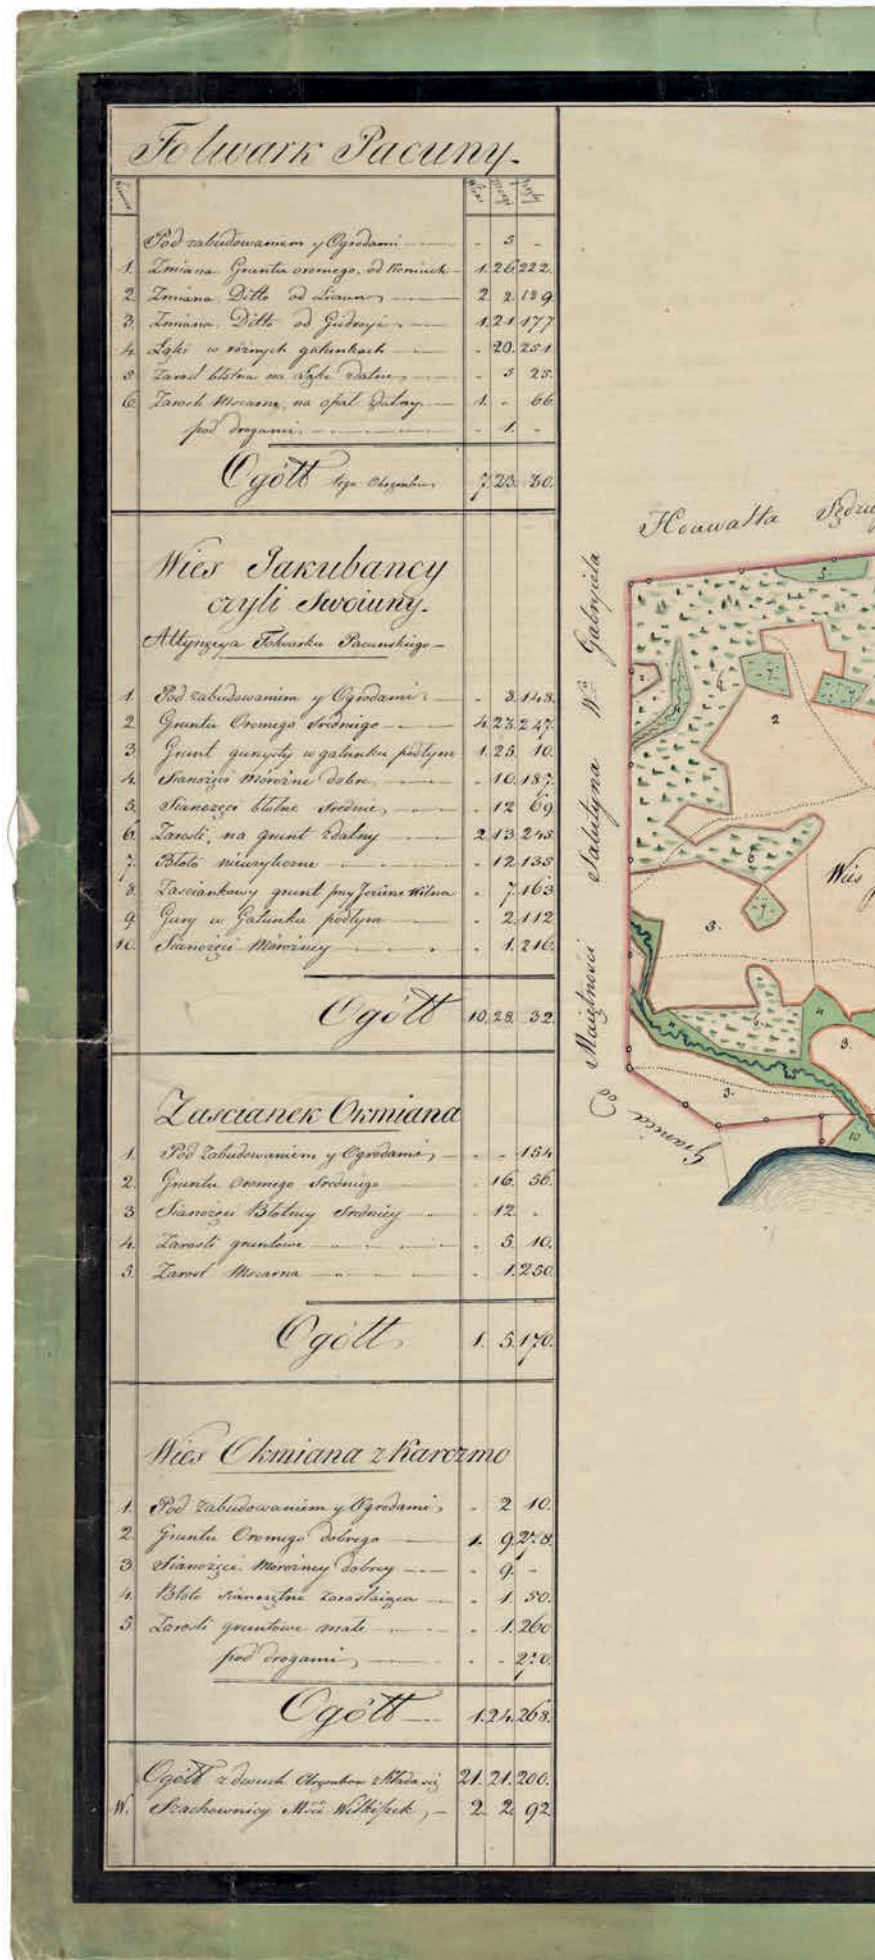 Folwark Pacuny.
Numera Włoki Morgi Pręty
Pod zabudowaniem y Ogrodami - 5 -
1. Zmiana Gruntu oromego, od Koniuch 1. 26. 222.
2. Zmiana, Ditto od 2. 2. 189.
3. Zmiana, Ditto od 1. 21. 177
4. Łąki w róznych gatunkach - 20. 251
5 Zarosl błotna na Łąki zdatna - 5 25.
6. Zarosli Mszarne, na opał zdatny 1. - 66.
pod drogami - 1. -
Ogółł tego Obrembu 7. 23. 30.
Wies Jakubancy
czyli Swoiuny.
Attynęcya Folwarku Pacunskiego
1. Pod zabudowaniem y Ogrodami - 3. 148.
2. Gruntu Oromego średniego 4. 23. 247.
3. Grunt gurzysty w gatunku podłym 1. 25. 10.
4. Sianożęci Mórożne dobre - 10. 187.
5. Sianożęci błotne średnie - 12 69.
6. Zarosli, na grunt zdatny 2 13 245
7. Błoto nieuzyteczne - 12. 135
8. Zasciankowy grunt przy Jeziorze - 7. 163
9. Gury w Gatunku podłym - 2. 112
10. Sianożęci Mórożney - 1. 216.
Ogółł 10. 28. 32.
Zascianek Okmiana
1. Pod Zabudowaniem y Ogrodami - - 154
2. Gruntu oromego średniego 16. 56.
3 Sianożęci Błotney średniey - 12. -
4. Zarosli gruntowe - 5. 10.
5. Zarosl Mszarna - 1. 250
Ogółł 1. 5. 170.
Wies Okmiana z Karczmo
1. Pod zabudowaniem y Ogrodami - 2 10.
2. Gruntu Oromego dobrego 1. 9. 278.
3 Sianożęci Mórożney dobrey - 9. -
4. Błoto sianożętne zarastaiące - 1. 50.
5 Zarosli gruntowe małe - 1. 260
pod drogami - - 270.
Ogółł 1. 24. 268.
Ogółł z dwuch Obrembow składa się 21. 21. 200.
W. Szachownicy 2. 2. 92
Houwalta
Granica Od Maiętności Salutyna Wo Gabryela
5.
2
6.
7.
7.
4
2
6
7
3.
Wies
6.
4
4
3.
3.
10